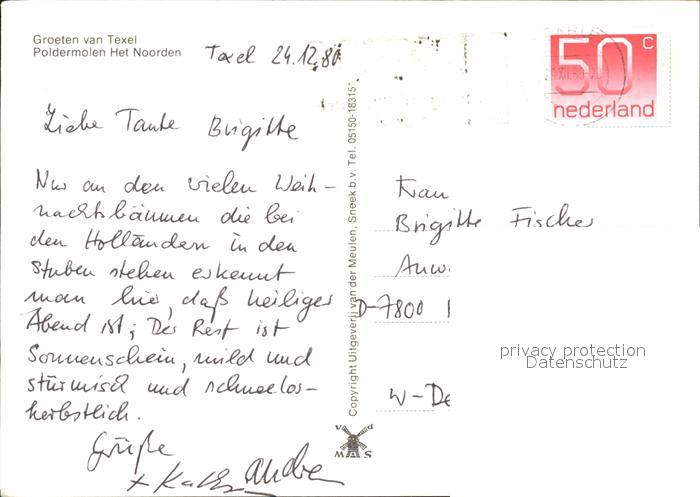 Groeten van Texel
Poldermolen Het Noorden
Texel 24.12.80
50 c
nederland
Liebe Tante Brigitte
Nur an den vielen Weih-
nachtsbäumen die bei
den Holländern in den
Stuben stehen erkennt
man hier, daß heiliger
Abend ist; Der Rest ist
Sonnenschein, mild und
stürmisch und schneelos-
herbstlich.
Grüße
Copyright Uitgeverij van der Meulen, Sneek b.v. Tel. 05150-18315*
v d
M S
Frau
Brigitte Fischer
Anw.
D-7800
W-De
privacy protection
Datenschutz